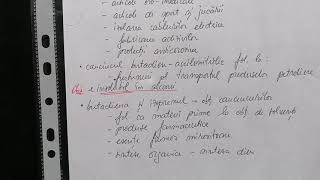 - articole bio-medicale
- articole de sport și jucării
- izolarea cablurilor electrice
- fabricarea adezivilor
- protecții anticorozive
• cauciucul butadien-acrilonitrilic fol. la:
- furtunuri pt transportul produselor petroliere
e insolubil în alcooli
• butadiena și izoprenul - obț. cauciucurilor
- fol ca materii prime la obț de
- produse farmaceutice
- esențe frumos mirositoare
- sinteze organice - sinteza dien